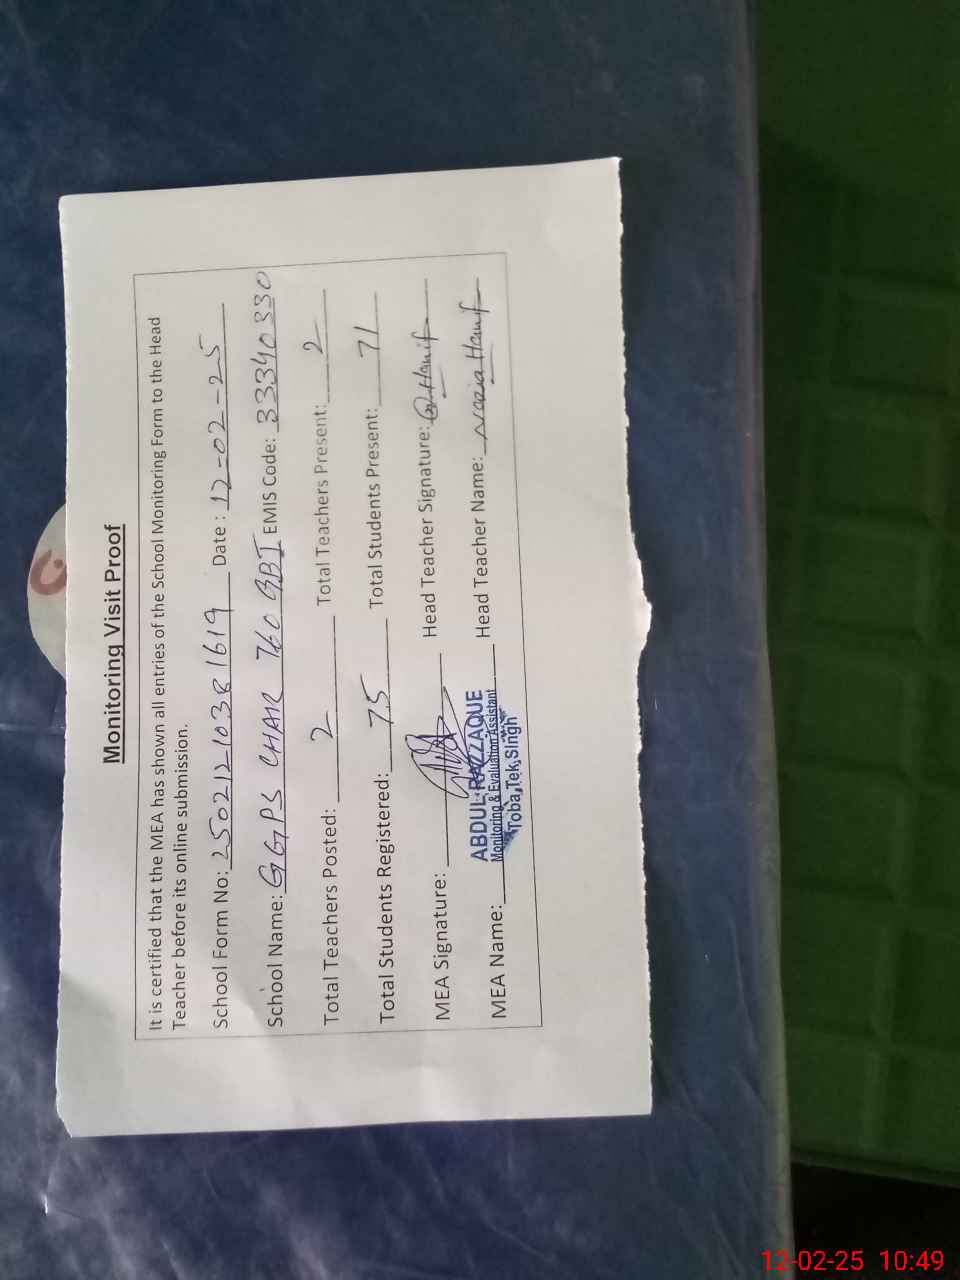 Monitoring Visit Proof
It is certified that the MEA has shown all entries of the School Monitoring Form to the Head
Teacher before its online submission.
School Form No: 25021210381619 Date: 12-02-25
School Name: GGPS CHAK 760 GBI EMIS Code: 33340330
Total Teachers Posted: 2 Total Teachers Present: 2
Total Students Registered: 75 Total Students Present: 71
MEA Signature: Head Teacher Signature: Hanif
MEA Name: Head Teacher Name: Nazia Hanif
ABDUL RAZZAQUE
Monitoring & Evaluation Assistant
Toba Tek Singh
12-02-25 10:49